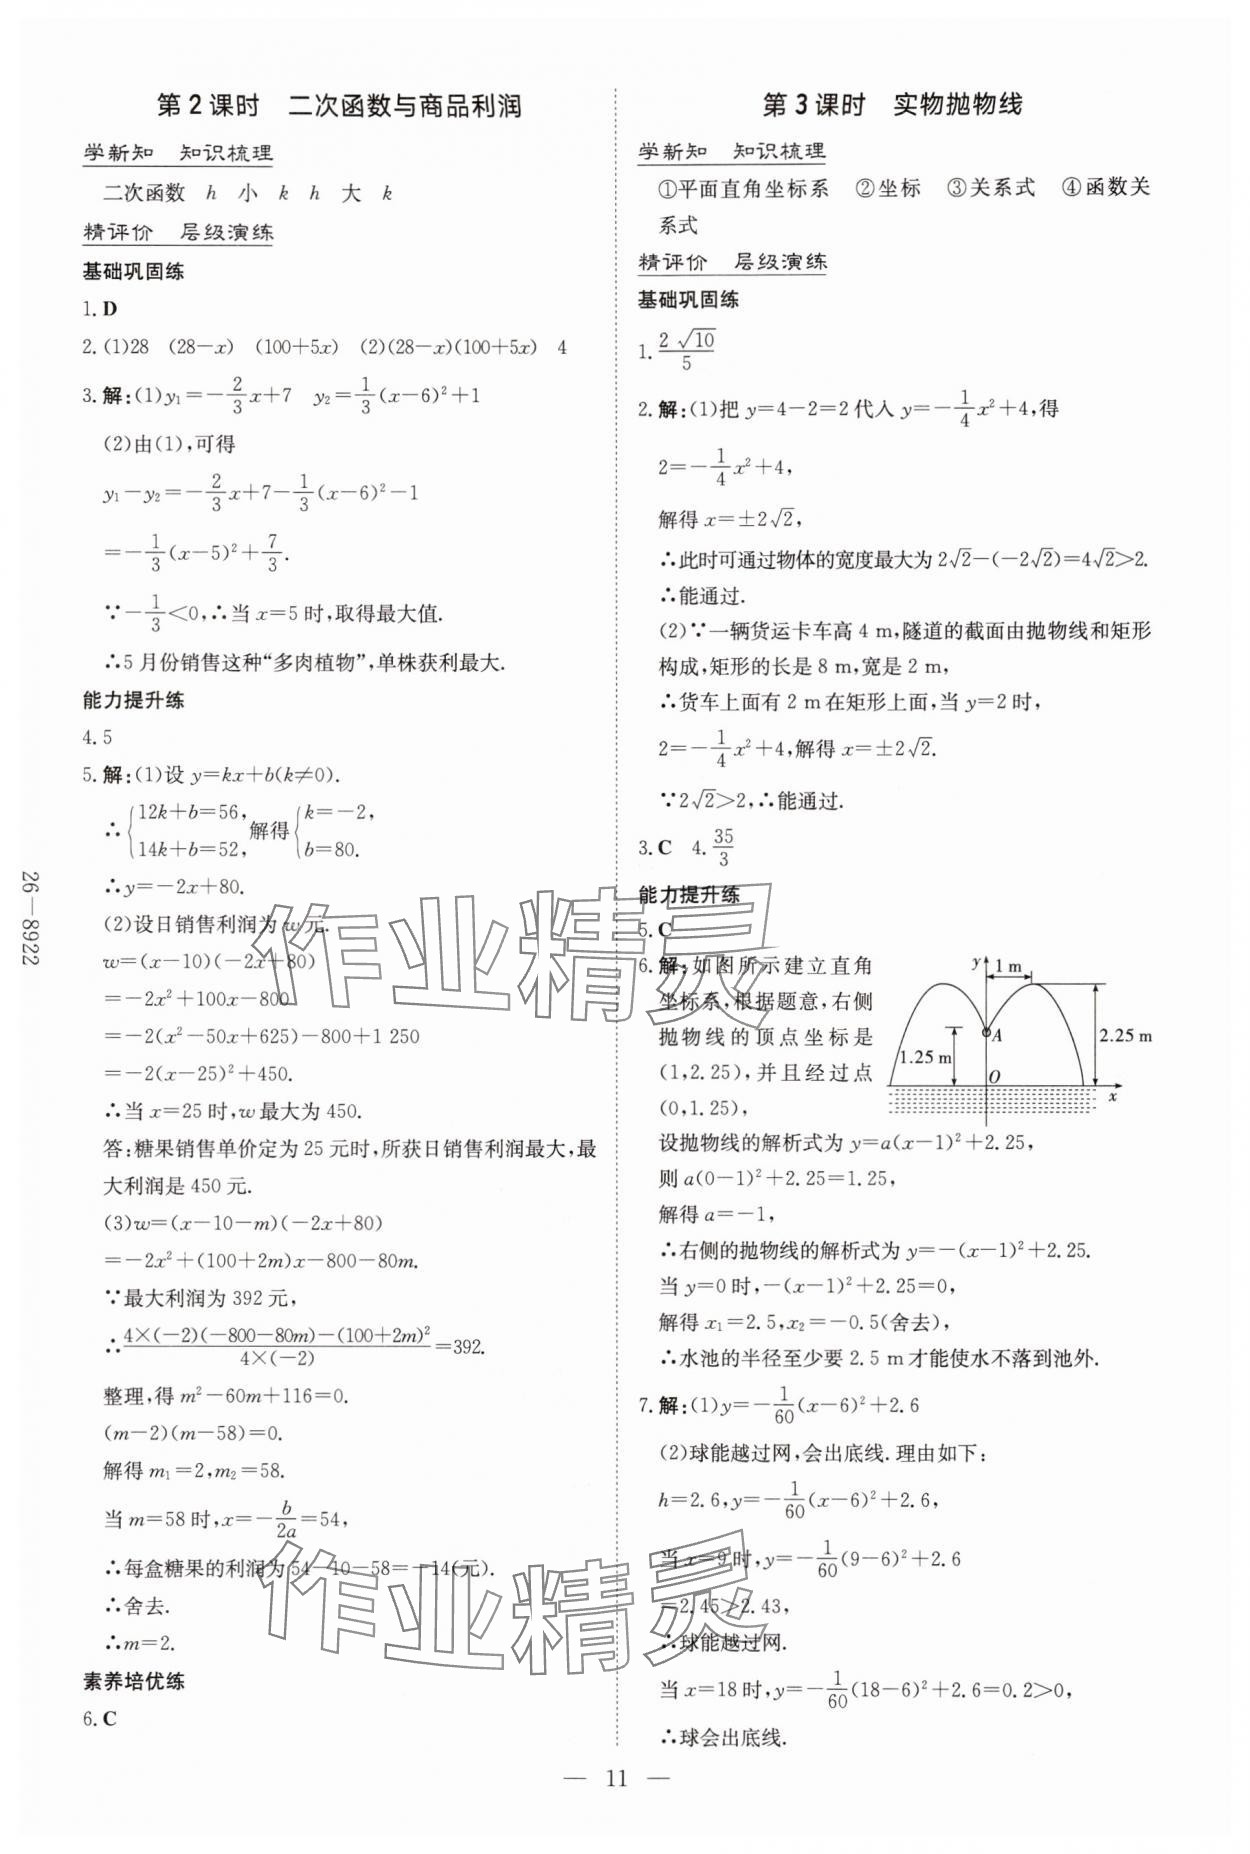 第2课时　二次函数与商品利润
学新知　知识梳理
二次函数　h　小　k　h　大　k
精评价　层级演练
基础巩固练
1. D
2. (1)28　(28－x)　(100＋5x)　(2)(28－x)(100＋5x)　4
3. 解:(1)y₁＝－2/3x＋7　y₂＝1/3(x－6)²＋1
(2)由(1),可得
y₁－y₂＝－2/3x＋7－1/3(x－6)²－1
＝－1/3(x－5)²＋7/3.
∵－1/3＜0,∴当 x＝5 时,取得最大值.
∴5 月份销售这种“多肉植物”,单株获利最大.
能力提升练
4. 5
5. 解:(1)设 y＝kx＋b(k≠0).
∴{12k＋b＝56, 14k＋b＝52, 解得{k＝－2, b＝80.
∴y＝－2x＋80.
(2)设日销售利润为 w 元.
w＝(x－10)(－2x＋80)
＝－2x²＋100x－800
＝－2(x²－50x＋625)－800＋1 250
＝－2(x－25)²＋450.
∴当 x＝25 时,w 最大为 450.
答:糖果销售单价定为 25 元时,所获日销售利润最大,最
大利润是 450 元.
(3)w＝(x－10－m)(－2x＋80)
＝－2x²＋(100＋2m)x－800－80m.
∵最大利润为 392 元,
∴(4×(－2)(－800－80m)－(100＋2m)²)/(4×(－2))＝392.
整理,得 m²－60m＋116＝0.
(m－2)(m－58)＝0.
解得 m₁＝2,m₂＝58.
当 m＝58 时,x＝－b/2a＝54,
∴每盒糖果的利润为 54－10－58＝－14(元).
∴舍去.
∴m＝2.
素养培优练
6. C
第3课时　实物抛物线
学新知　知识梳理
①平面直角坐标系　②坐标　③关系式　④函数关
系式
精评价　层级演练
基础巩固练
1. 2√10/5
2. 解:(1)把 y＝4－2＝2 代入 y＝－1/4x²＋4,得
2＝－1/4x²＋4,
解得 x＝±2√2,
∴此时可通过物体的宽度最大为 2√2－(－2√2)＝4√2＞2.
∴能通过.
(2)∵一辆货运卡车高 4 m,隧道的截面由抛物线和矩形
构成,矩形的长是 8 m,宽是 2 m,
∴货车上面有 2 m 在矩形上面,当 y＝2 时,
2＝－1/4x²＋4,解得 x＝±2√2.
∵2√2＞2,∴能通过.
3. C　4. 35/3
能力提升练
5. C
6. 解:如图所示建立直角
坐标系,根据题意,右侧
抛物线的顶点坐标是
(1,2.25),并且经过点
(0,1.25),
y
1 m
A
2.25 m
1.25 m
O
x
设抛物线的解析式为 y＝a(x－1)²＋2.25,
则 a(0－1)²＋2.25＝1.25,
解得 a＝－1,
∴右侧的抛物线的解析式为 y＝－(x－1)²＋2.25.
当 y＝0 时,－(x－1)²＋2.25＝0,
解得 x₁＝2.5,x₂＝－0.5(舍去),
∴水池的半径至少要 2.5 m 才能使水不落到池外.
7. 解:(1)y＝－1/60(x－6)²＋2.6
(2)球能越过网,会出底线.理由如下:
h＝2.6,y＝－1/60(x－6)²＋2.6,
当 x＝9 时,y＝－1/60(9－6)²＋2.6
＝2.45＞2.43,
∴球能越过网.
当 x＝18 时,y＝－1/60(18－6)²＋2.6＝0.2＞0,
∴球会出底线.
— 11 —
26—8922
作业精灵
作业精灵